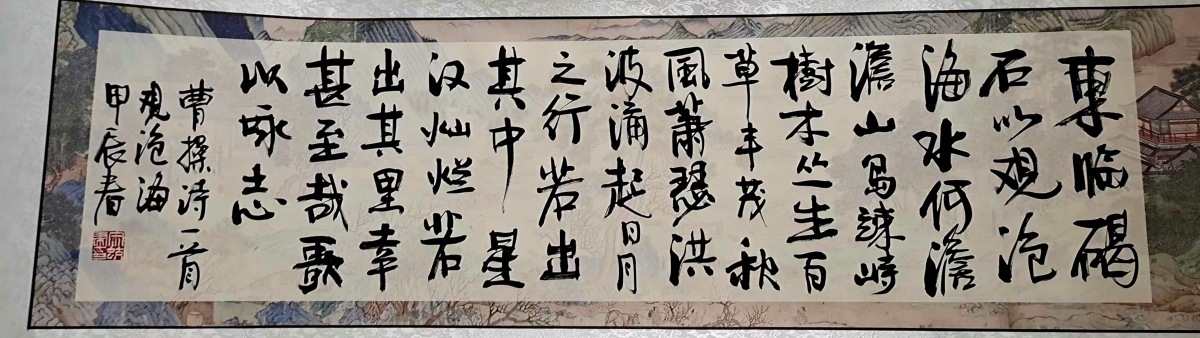 東临碣
石以观沧
海水何澹
澹山岛竦峙
樹木丛生百
草丰茂秋
風蕭瑟洪
波涌起日月
之行若出
其中星
汉灿烂若
出其里幸
甚至哉歌
以咏志
曹操诗一首
观沧海
甲辰春